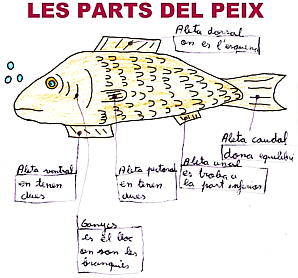 LES PARTS DEL PEIX
Aleta dorsal
on es l'esquena
Aleta caudal
dona equilibri
Aleta ventral
en tenen
dues
Aleta pectoral
en tenen
dues
Aleta anal
es troba a
la part inferior
Ganyes
es el lloc
on son les
brànquies